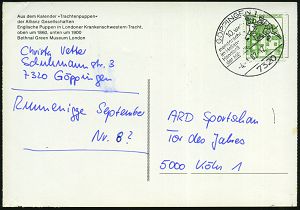 Aus dem Kalender »Trachtenpuppen«
der Allianz Gesellschaften
Englische Puppen in Londoner Krankenschwestern-Tracht,
oben um 1860, unten um 1900
Bethnal Green Museum London
Christa Vetter
Schuhmannstr. 3
7320 Göppingen
Rummenigge September
Nr. 8?
GÖPPINGEN 1
7320
ARD Sportschau!
Tor des Jahres
5000 Köln 1